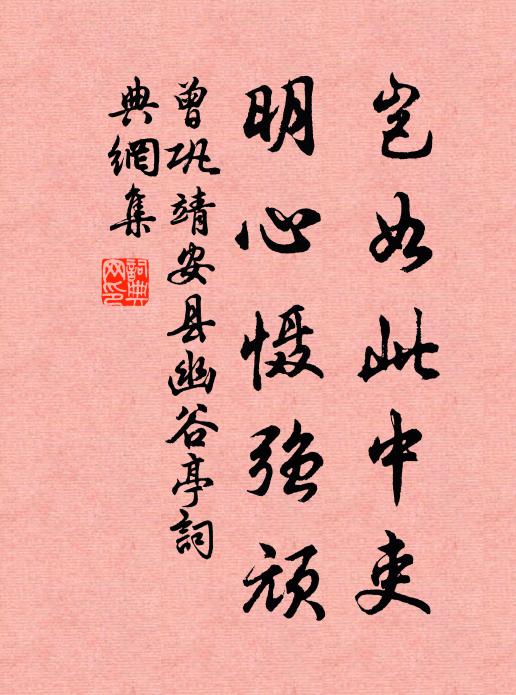 岂如此中吏
明心慑强顽
曾巩靖安县幽谷亭詞
典網集
詞典网印